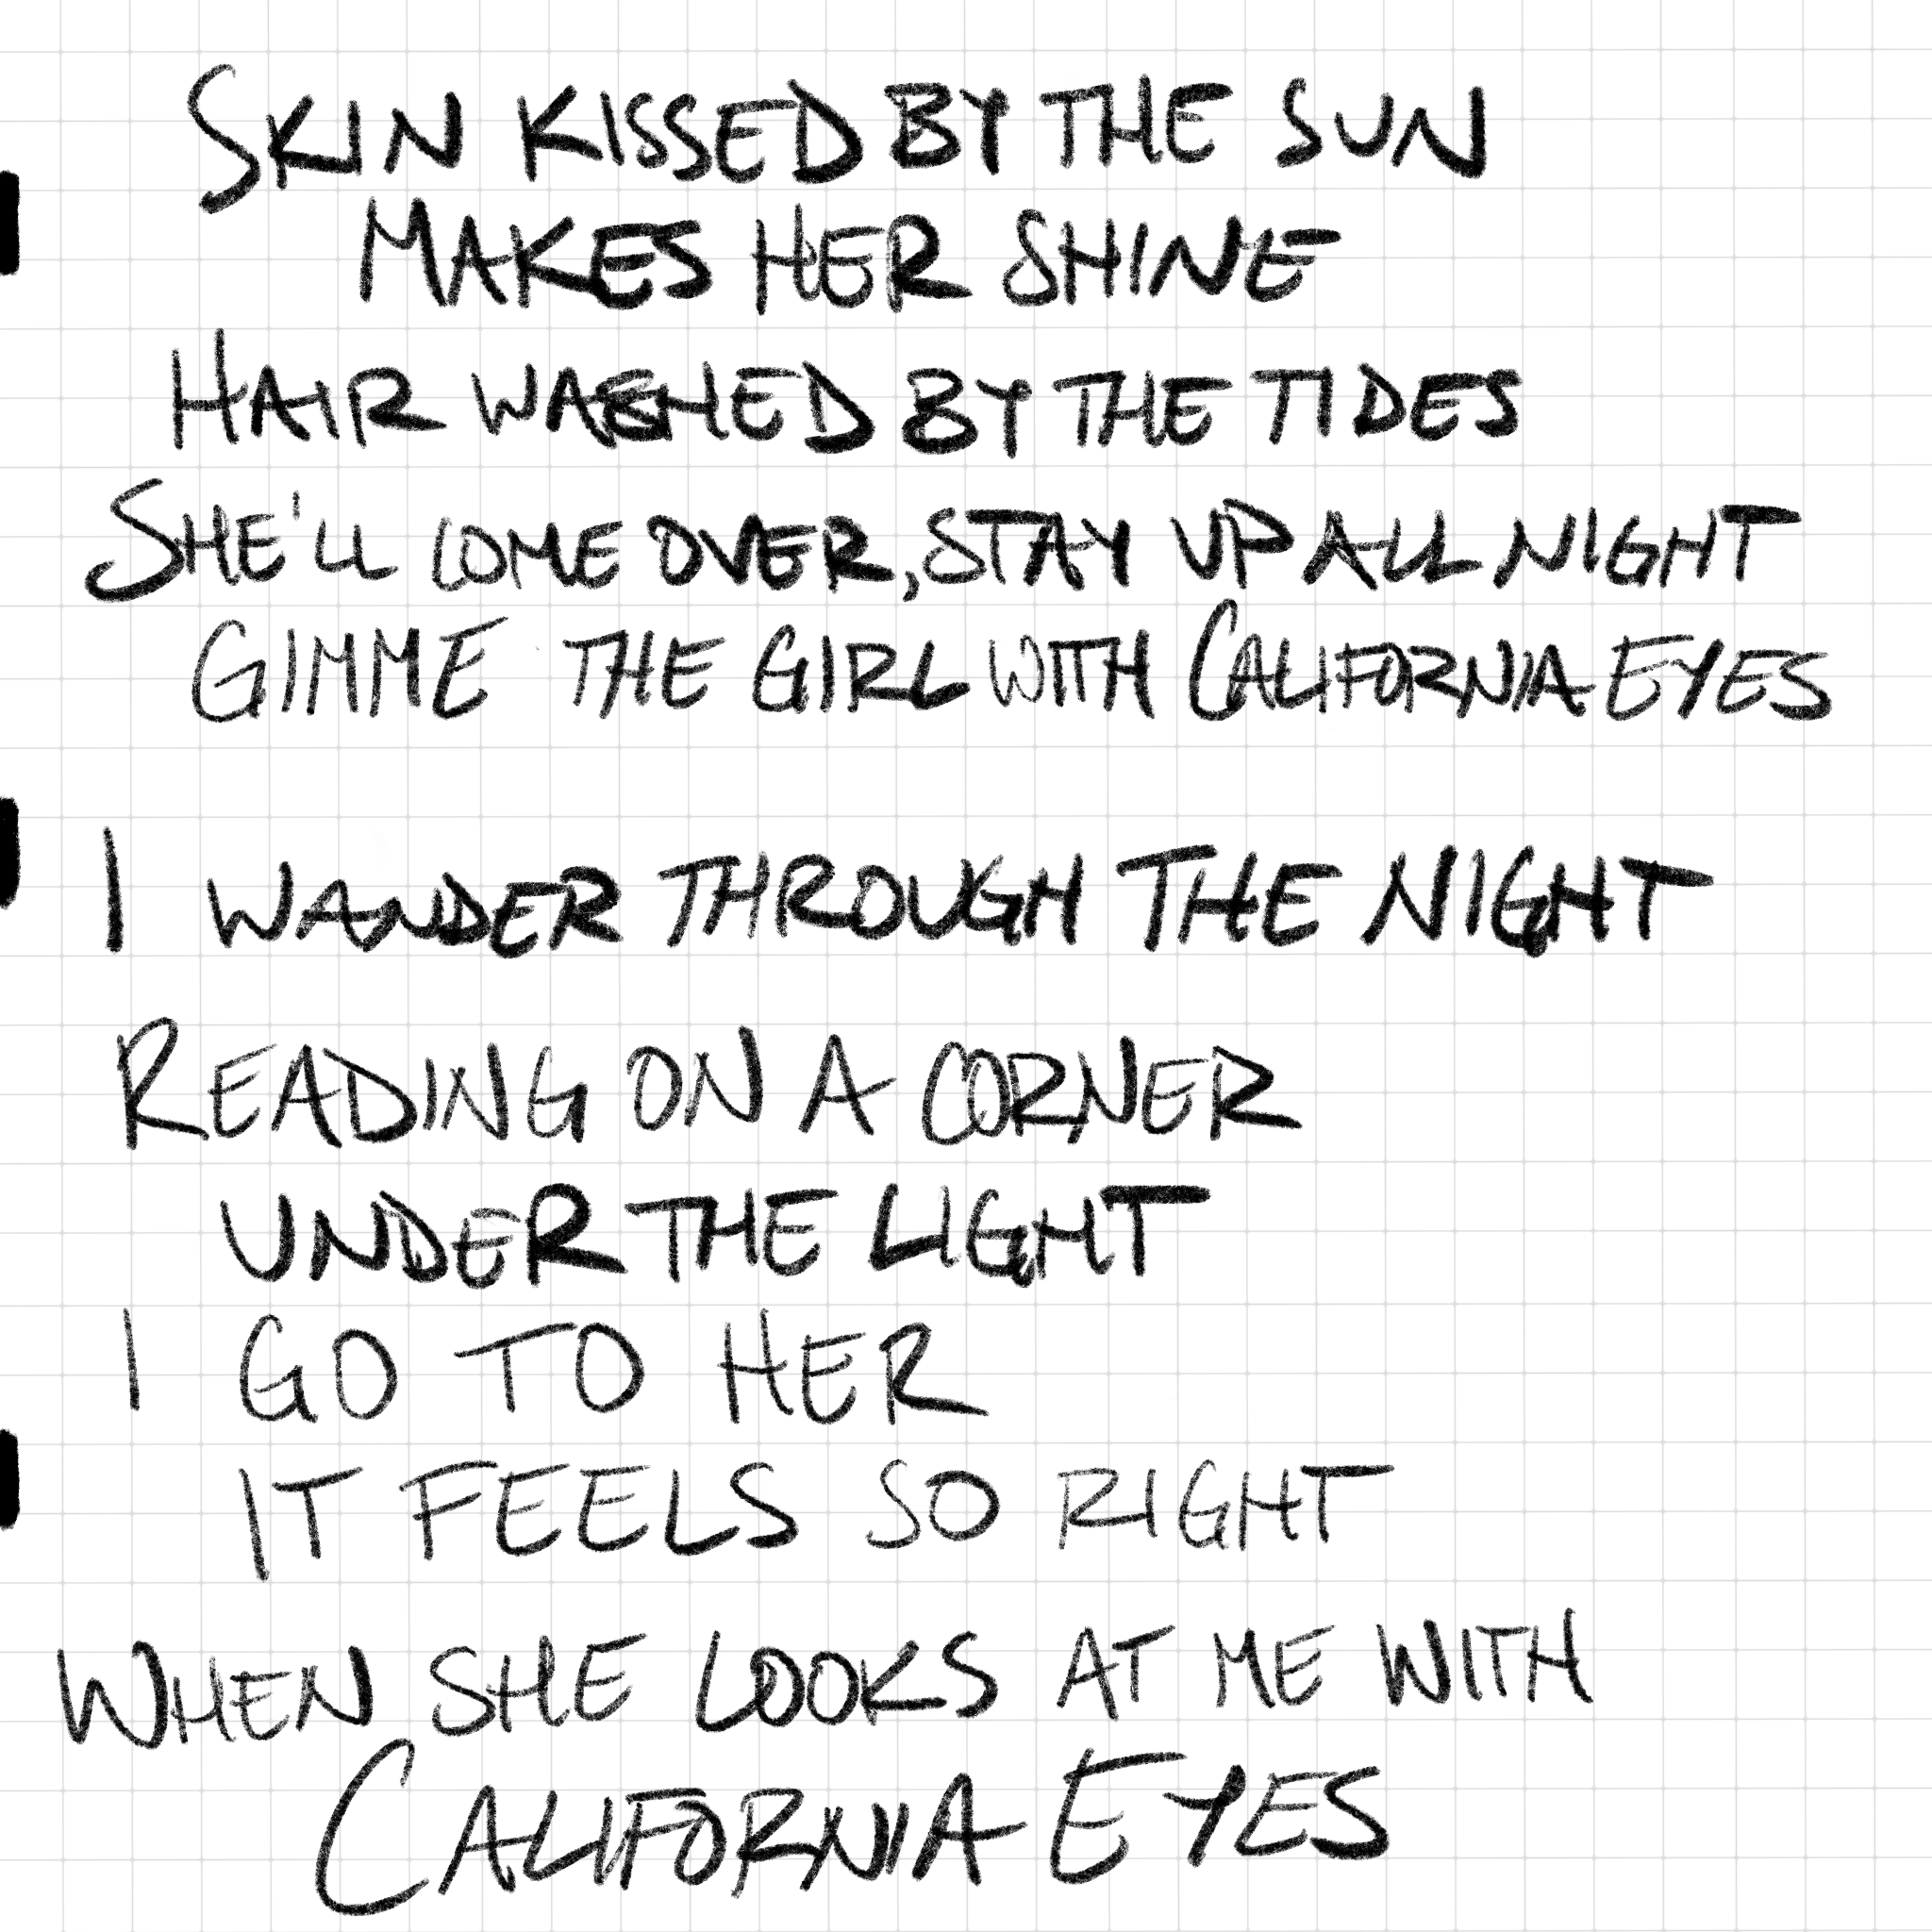 SKIN KISSED BY THE SUN
MAKES HER SHINE
HAIR WASHED BY THE TIDES
SHE'LL COME OVER, STAY UP ALL NIGHT
GIMME THE GIRL WITH CALIFORNIA EYES
I WANDER THROUGH THE NIGHT
READING ON A CORNER
UNDER THE LIGHT
I GO TO HER
IT FEELS SO RIGHT
WHEN SHE LOOKS AT ME WITH
CALIFORNIA EYES